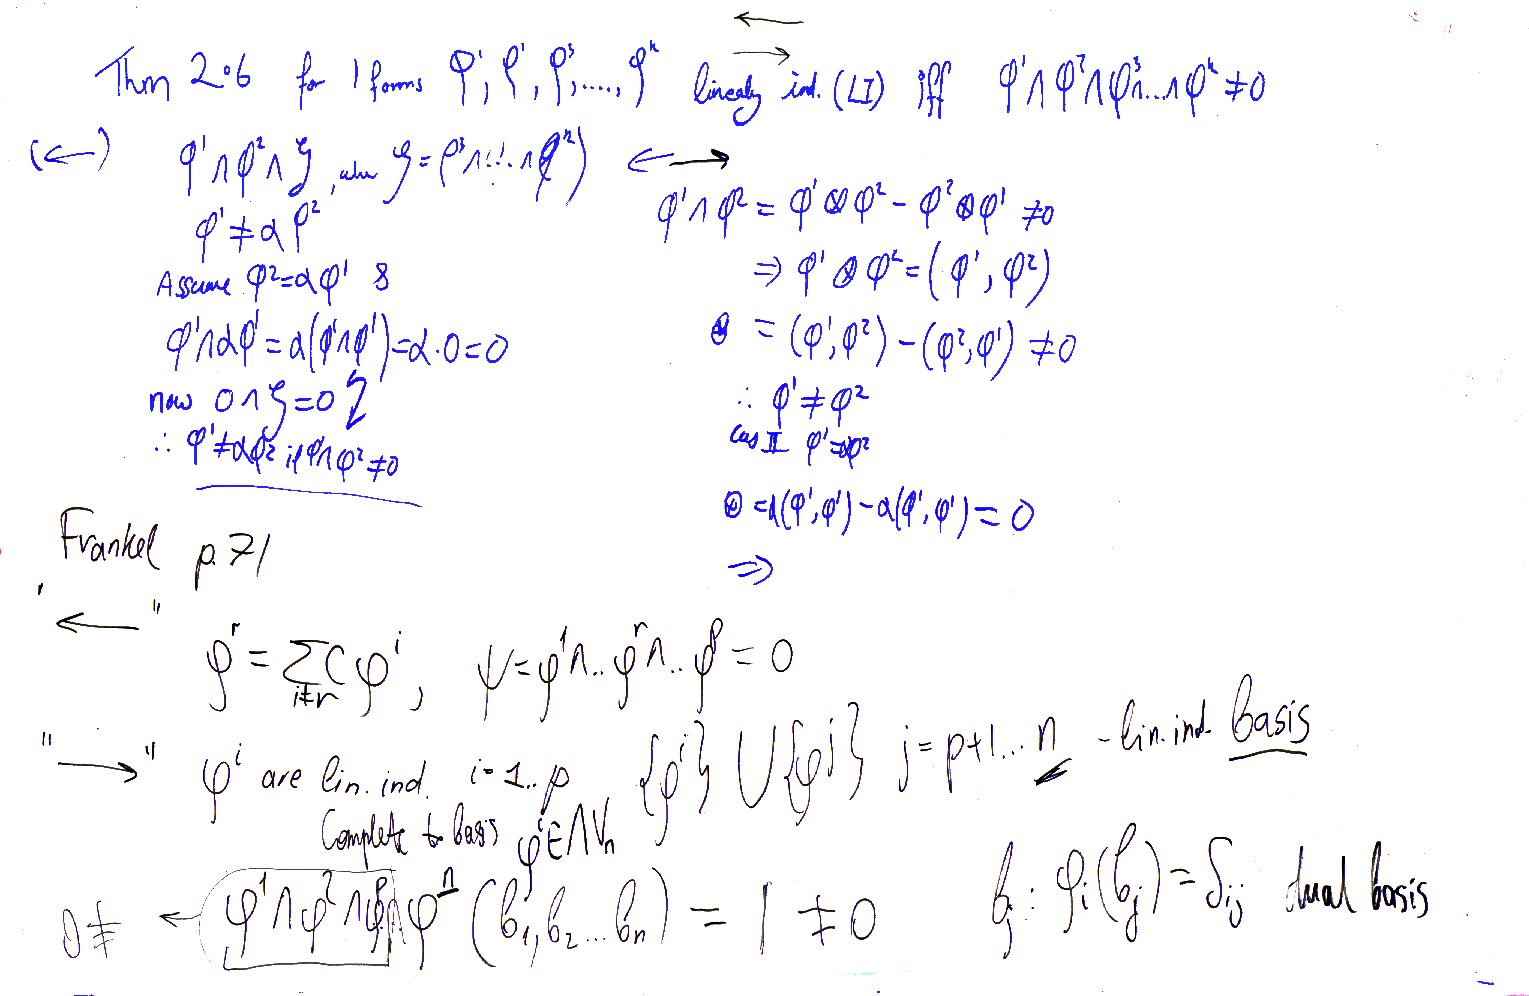 ← →
Thm 2.6 for 1 forms φ¹, φ¹, φ³, ...., φᵏ linearly ind. (LI) iff φ¹∧φ²∧φ³∧...∧φᵏ ≠ 0
(←) φ¹∧φ²∧ζ, when ζ = φ³∧...∧φᵏ)
φ¹ ≠ αφ²
Assume φ² = αφ¹ &
φ¹∧αφ¹ = α(φ¹∧φ¹) = α·0 = 0
now 0∧ζ = 0
∴ φ¹ ≠ αφ² if φ¹∧φ² ≠ 0
← →
φ¹∧φ² = φ¹⊗φ² - φ²⊗φ¹ ≠ 0
⇒ φ¹⊗φ² = (φ¹, φ²)
= (φ¹, φ²) - (φ², φ¹) ≠ 0
∴ φ¹ ≠ φ²
Cas II φ¹=αφ²
= α(φ¹, φ¹) - α(φ¹, φ¹) = 0
⇒
Frankel p. 71
"←" φʳ = Σ_{i≠r} C φⁱ, ψ = φ¹∧..φʳ∧..φᵖ = 0
"→" φⁱ are lin. ind. i = 1..p {φⁱ} ∪ {φʲ} j = p+1...n - lin. ind. basis
Complete to basis φⁱ ∈ ΛVₙ
0 ≠ ← φ¹∧φ²∧φᵖ∧φⁿ (b₁, b₂...bₙ) = 1 ≠ 0 bⱼ : φᵢ(bⱼ) = δᵢⱼ dual basis